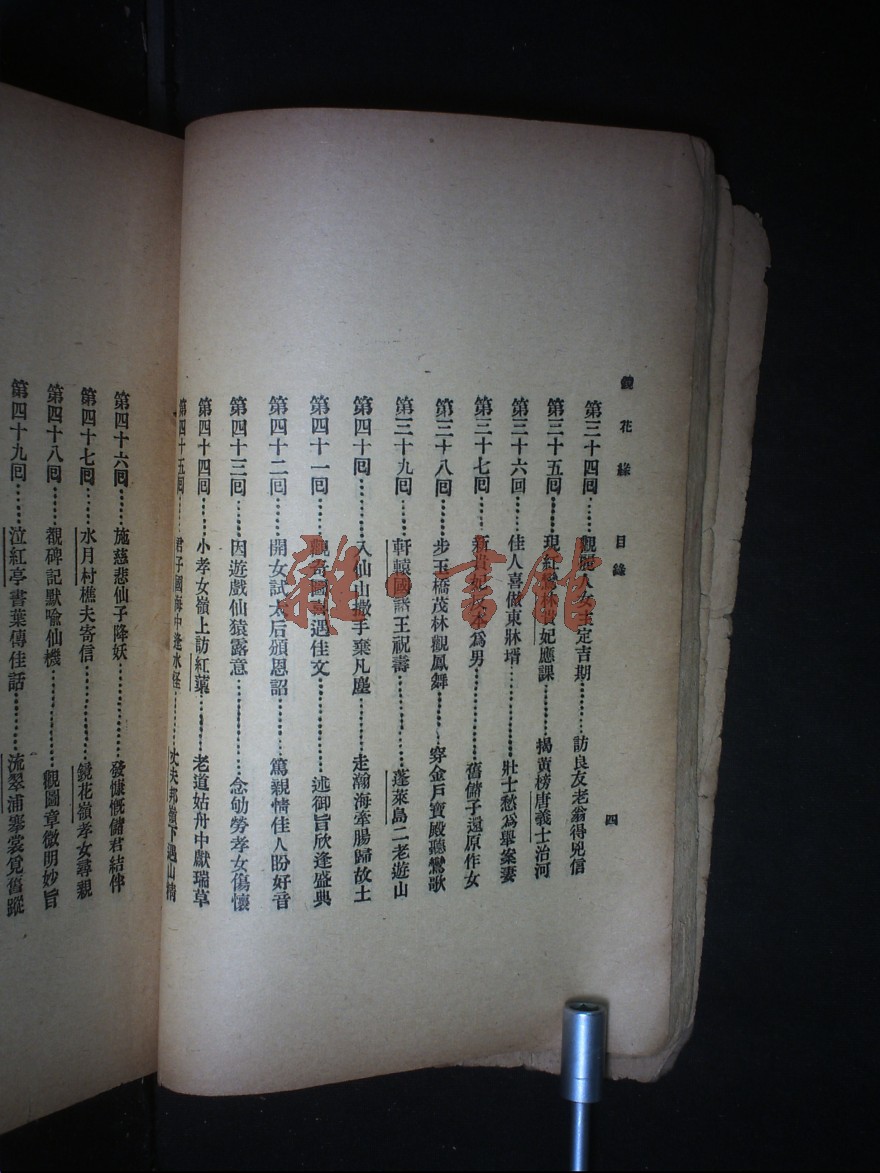 鏡花緣 目錄
四
第三十四回……觀麗人女主定吉期……訪良友老翁得兇信
第三十五回……現紅鸞林貴妃應課……揭黃榜唐義士治河
第三十六回……佳人喜做東牀壻……壯士愁爲舉案妻
第三十七回……新貴妃反本爲男……舊儲子還原作女
第三十八回……步玉橋茂林觀鳳舞……穿金戶寶殿聽鸞歌
第三十九回……軒轅國諸王祝壽……蓬萊島二老遊山
第四十回……入仙山撒手棄凡塵……走瀚海牽腸歸故土
第四十一回……觀奇圖喜遇佳文……述御旨欣逢盛典
第四十二回……開女試太后頒恩詔……篤親情佳人盼好音
第四十三回……因遊戲仙猿露意……念劬勞孝女傷懷
第四十四回……小孝女嶺上訪紅蕖……老道姑舟中獻瑞草
第四十五回……君子國海中逢水怪……丈夫邦嶺下遇山精
第四十六回……施慈悲仙子降妖……發慷慨儲君結伴
第四十七回……水月村樵夫寄信……鏡花嶺孝女尋親
第四十八回……覩碑記默喻仙機……觀圖章微明妙旨
第四十九回……泣紅亭書葉傳佳話……流翠浦搴裳覓舊蹤
雜·書館